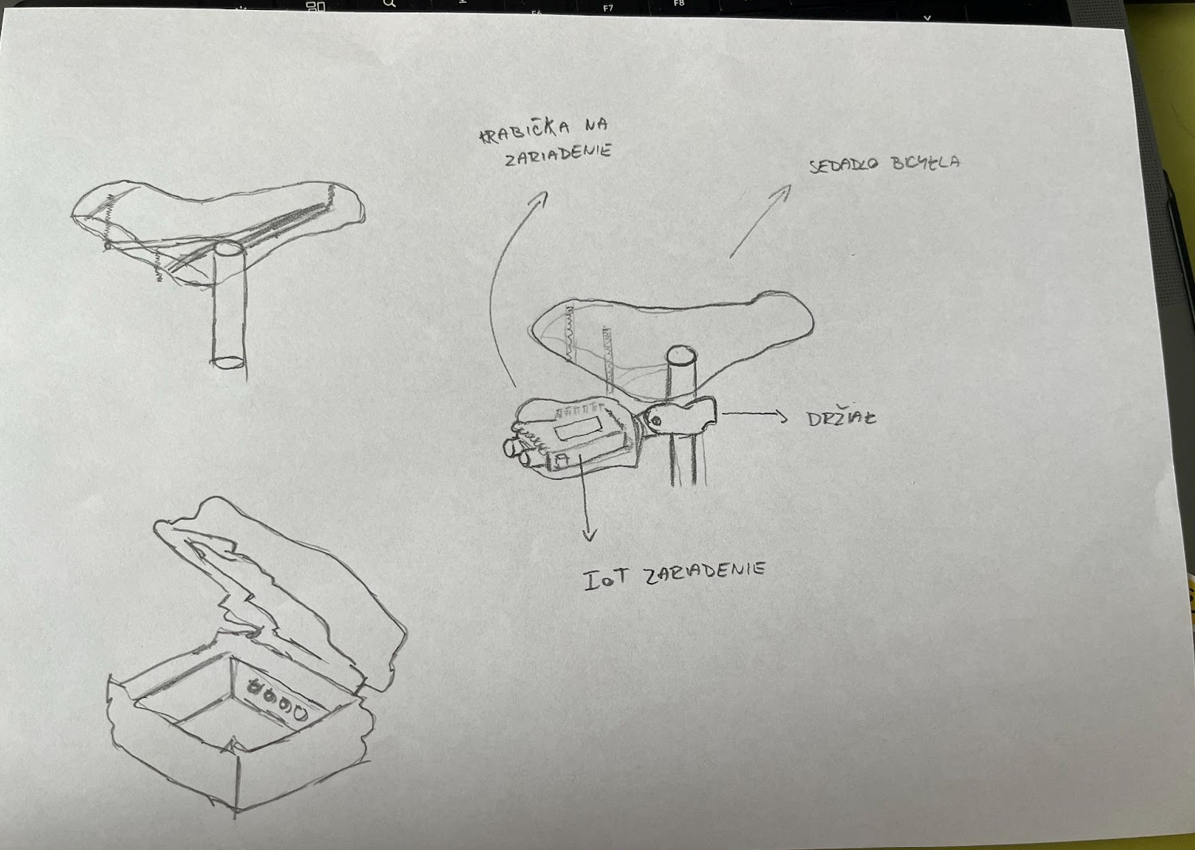 F7
F8
KRABIČKA NA
ZARIADENIE
SEDADLO BICYKLA
DRŽIAK
IoT ZARIADENIE